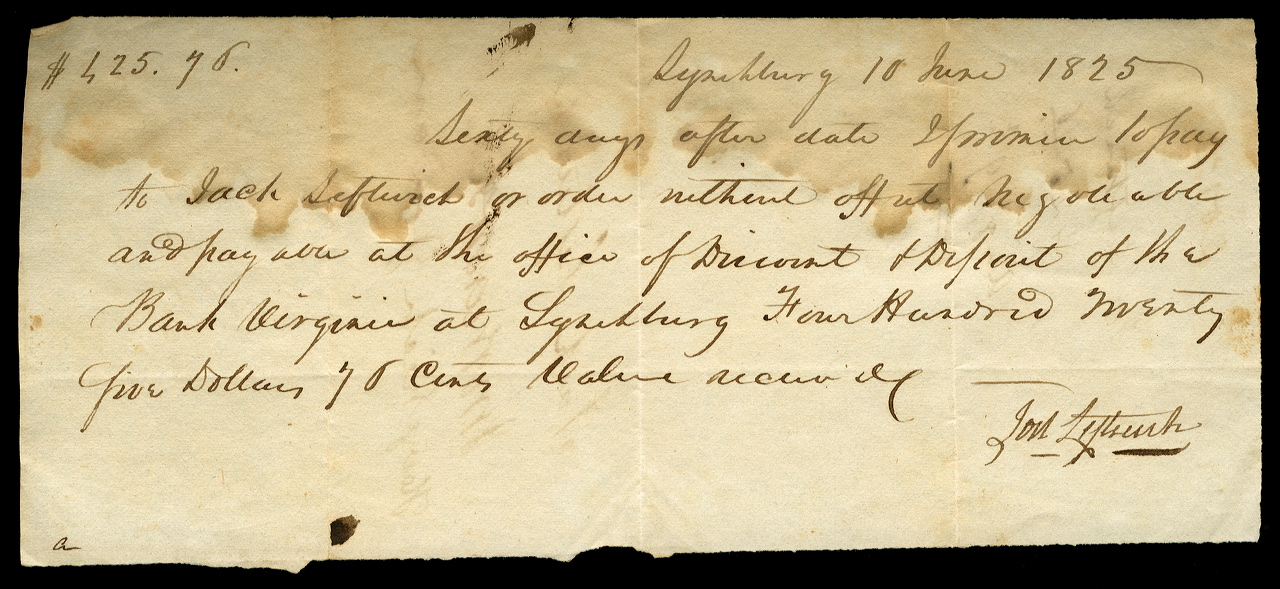 $ 425. 76.
Lynchburg 10 June 1825
Sixty days after date I promise to pay
to Jack Leftwich or order without offset Negotiable
and payable at the office of Discount & Deposit of the
Bank Virginia at Lynchburg Four Hundred Twenty
five Dollars 76 Cents Value received
Leftwich
a